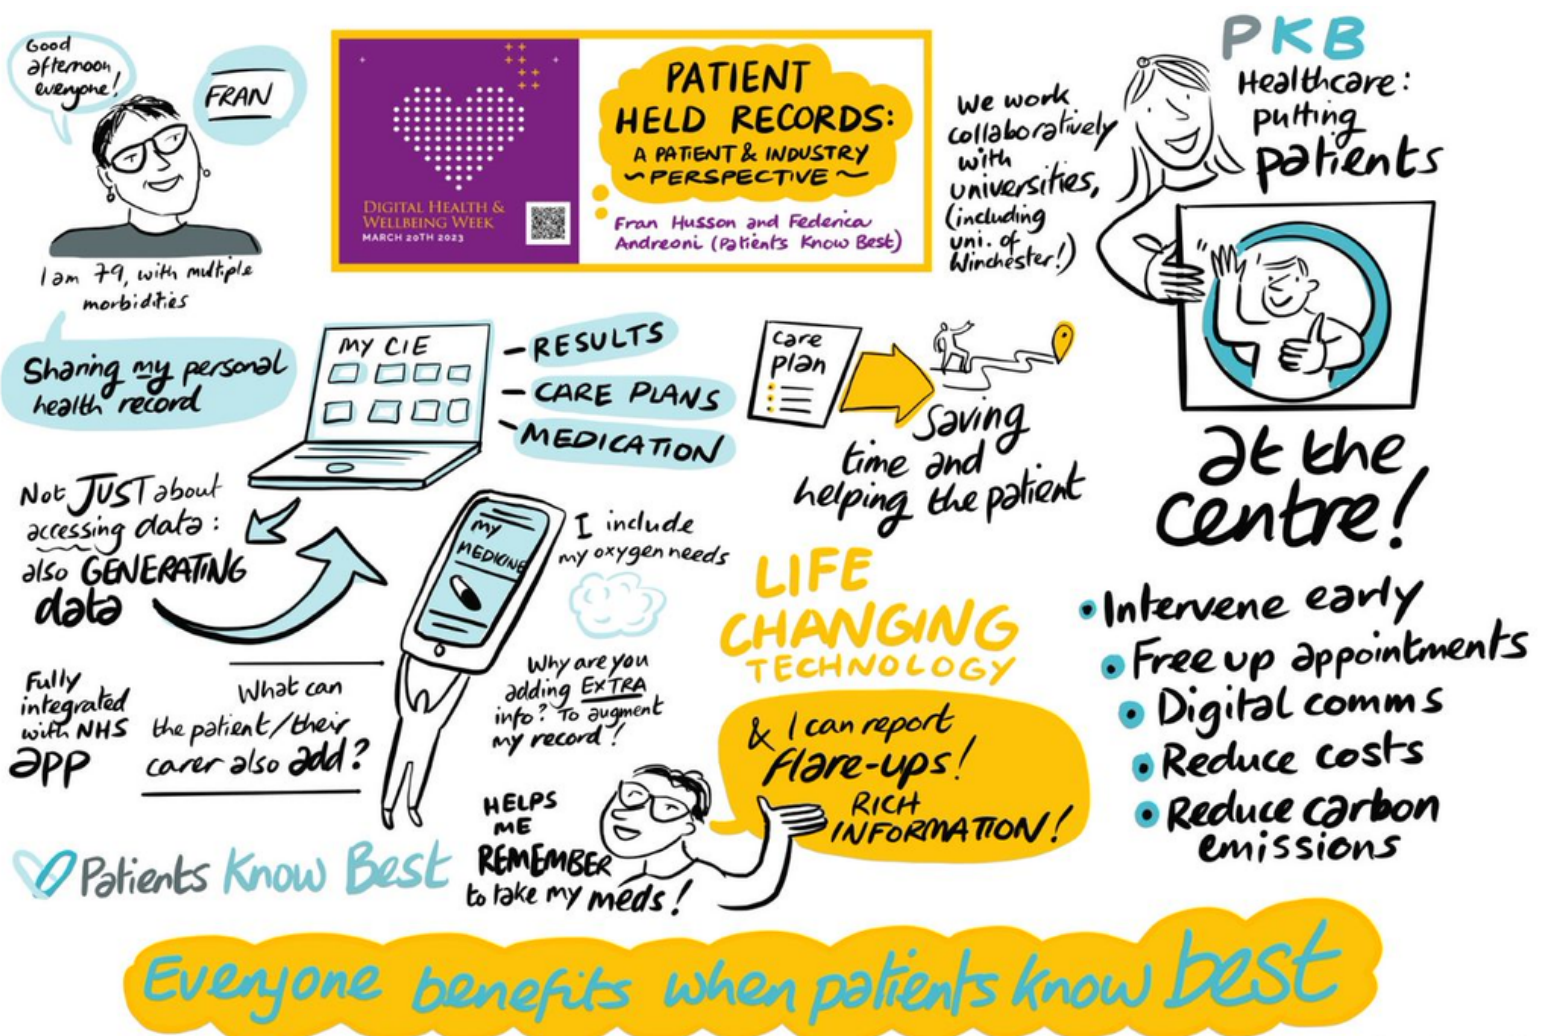 Good
afternoon
everyone!
FRAN
I am 79, with multiple
morbidities
Sharing my personal
health record
DIGITAL HEALTH &
WELLBEING WEEK
MARCH 20TH 2023
PATIENT
HELD RECORDS:
A PATIENT & INDUSTRY
~ PERSPECTIVE ~
Fran Husson and Federica
Andreoni (Patients Know Best)
We work
collaboratively
with
universities,
(including
uni. of
Winchester!)
PKB
Healthcare:
putting
patients
at the
centre!
MY CIE
- RESULTS
- CARE PLANS
- MEDICATION
care
plan
Saving
time and
helping the patient
Not JUST about
accessing data:
also GENERATING
data
my
MEDICINE
I include
my oxygen needs
Why are you
adding EXTRA
info? To augment
my record!
Fully
integrated
with NHS
app
What can
the patient/their
carer also add?
LIFE
CHANGING
TECHNOLOGY
& I can report
flare-ups!
RICH
INFORMATION!
HELPS
ME
REMEMBER
to take my meds!
• Intervene early
• Free up appointments
• Digital comms
• Reduce costs
• Reduce carbon
emissions
Patients Know Best
Everyone benefits when patients know best